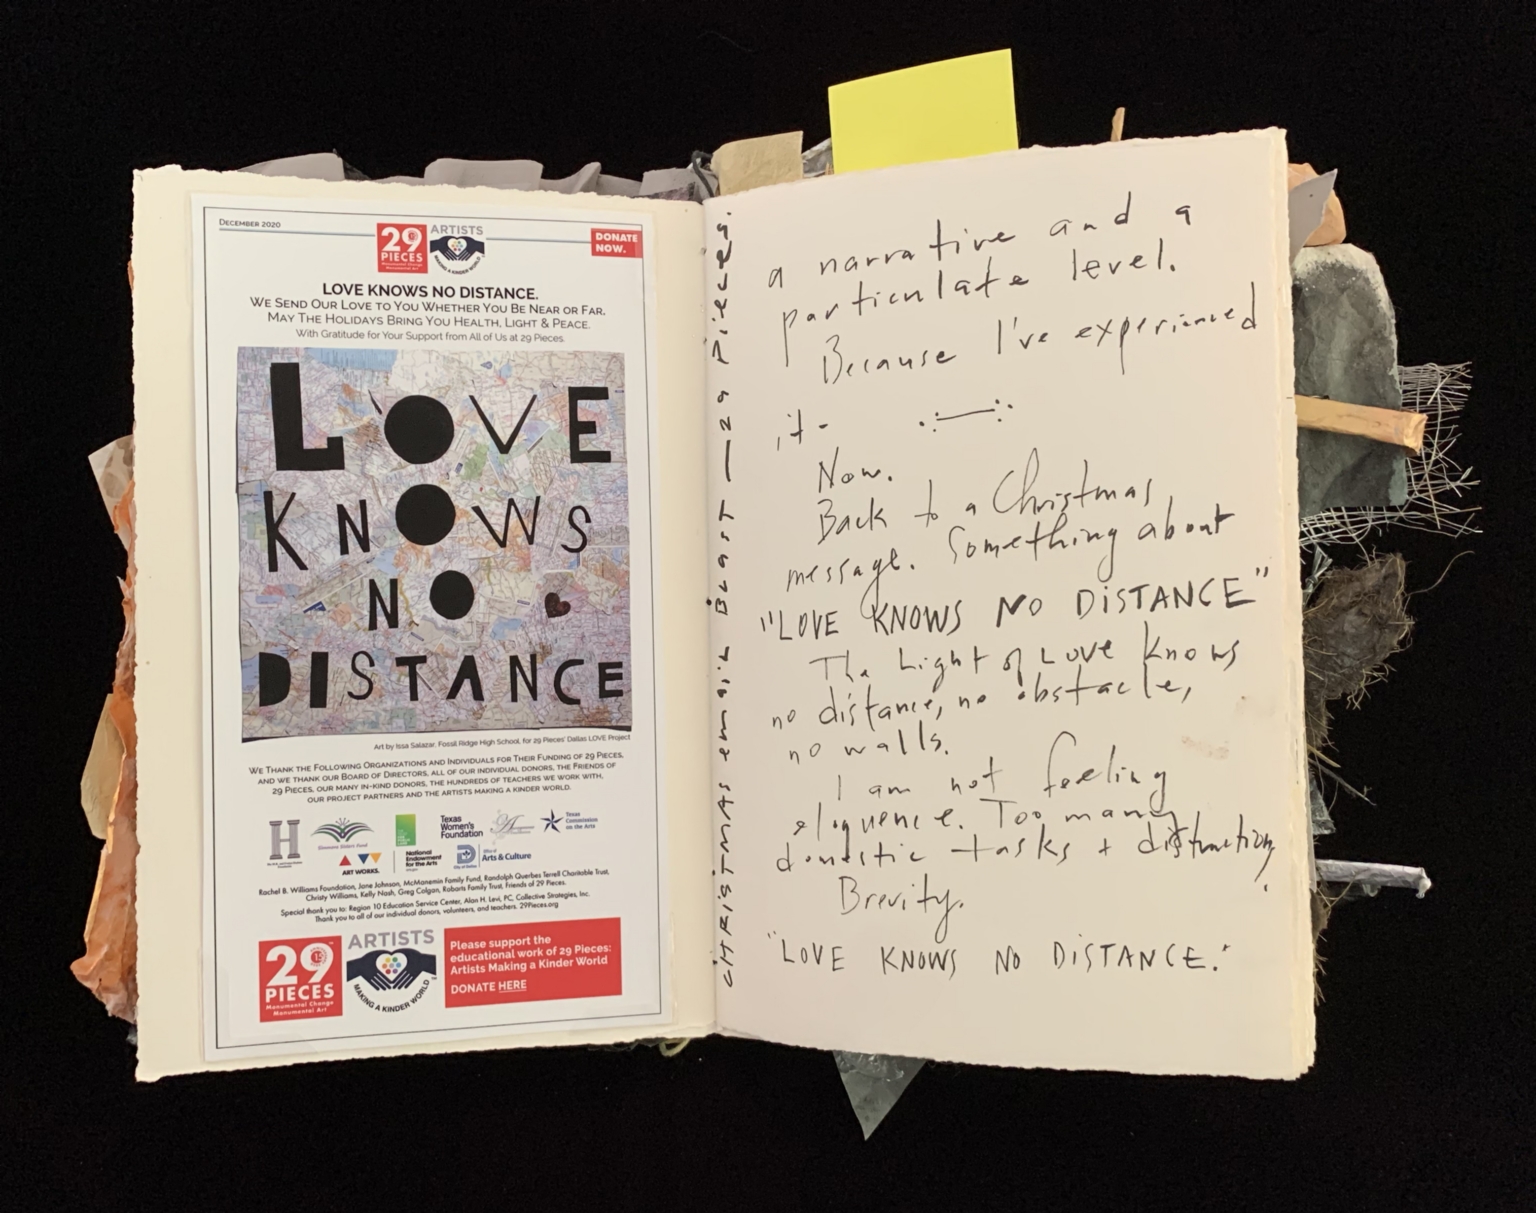 DECEMBER 2020
29 PIECES
Monumental Change
Monumental Art
ARTISTS
MAKING A KINDER WORLD
DONATE
NOW.
LOVE KNOWS NO DISTANCE.
WE SEND OUR LOVE TO YOU WHETHER YOU BE NEAR OR FAR,
MAY THE HOLIDAYS BRING YOU HEALTH, LIGHT & PEACE.
With Gratitude for Your Support from All of Us at 29 Pieces.
LOVE
KNOWS
NO
DISTANCE
Art by Issa Salazar, Fossil Ridge High School, for 29 Pieces' Dallas LOVE Project
WE THANK THE FOLLOWING ORGANIZATIONS AND INDIVIDUALS FOR THEIR FUNDING OF 29 PIECES,
AND WE THANK OUR BOARD OF DIRECTORS, ALL OF OUR INDIVIDUAL DONORS, THE FRIENDS OF
29 PIECES, OUR MANY IN-KIND DONORS, THE HUNDREDS OF TEACHERS WE WORK WITH,
OUR PROJECT PARTNERS AND THE ARTISTS MAKING A KINDER WORLD.
H
Texas
Women's
Foundation
Texas
Commission
on the Arts
ART WORKS.
National
Endowment
for the Arts
Office of
Arts & Culture
City of Dallas
Rachel B. Williams Foundation, Jane Johnson, McManemin Family Fund, Randolph Querbes Terrell Charitable Trust,
Christy Williams, Kelly Nash, Greg Colgan, Robarts Family Trust, Friends of 29 Pieces.
Special thank you to: Region 10 Education Service Center, Alan H. Levi, PC, Collective Strategies, Inc.
Thank you to all of our individual donors, volunteers, and teachers. 29Pieces.org
29
PIECES
Monumental Change
Monumental Art
ARTISTS
MAKING A KINDER WORLD
Please support the
educational work of 29 Pieces:
Artists Making a Kinder World
DONATE HERE
CHRISTMAS email BLAST — 29 Pieces.
a narrative and a
particulate level.
Because I've experienced
it-
Now.
Back to a Christmas
message. Something about
"LOVE KNOWS NO DISTANCE"
The Light of Love knows
no distance, no obstacle,
no walls.
I am not feeling
eloquence. Too many
domestic tasks + distraction.
Brevity.
"LOVE KNOWS NO DISTANCE."